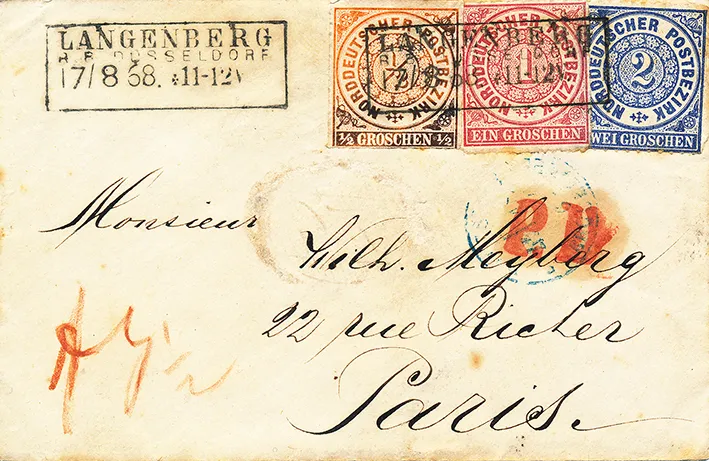 LANGENBERG
R.B. DUSSELDORF
17/8 68. *11-12V
NORDDEUTSCHER POSTBEZIRK
½ GROSCHEN ½
NORDDEUTSCHER POSTBEZIRK
1
EIN GROSCHEN
NORDDEUTSCHER POSTBEZIRK
2
ZWEI GROSCHEN
Monsieur
Wilh. Meyberg
22 rue Richer
Paris.